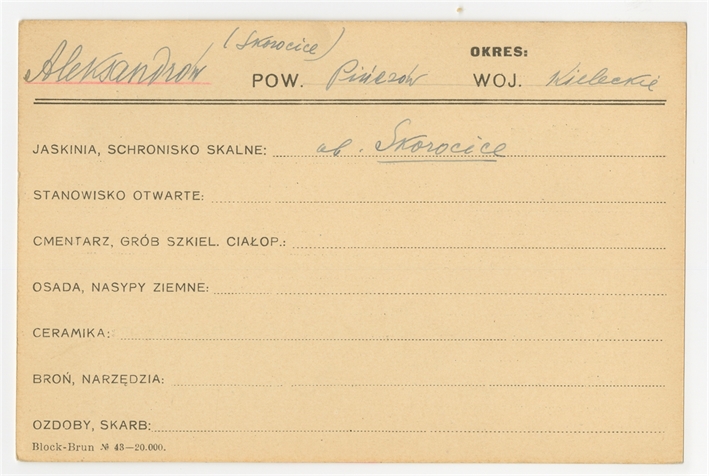 (Skorocice) OKRES:
Aleksandrów POW. Pińczów WOJ. Kieleckie
JASKINIA, SCHRONISKO SKALNE: ob. Skorocice
STANOWISKO OTWARTE:
CMENTARZ, GRÓB SZKIEL. CIAŁOP.:
OSADA, NASYPY ZIEMNE:
CERAMIKA:
BROŃ, NARZĘDZIA:
OZDOBY, SKARB:
Block-Brun № 43—20.000.